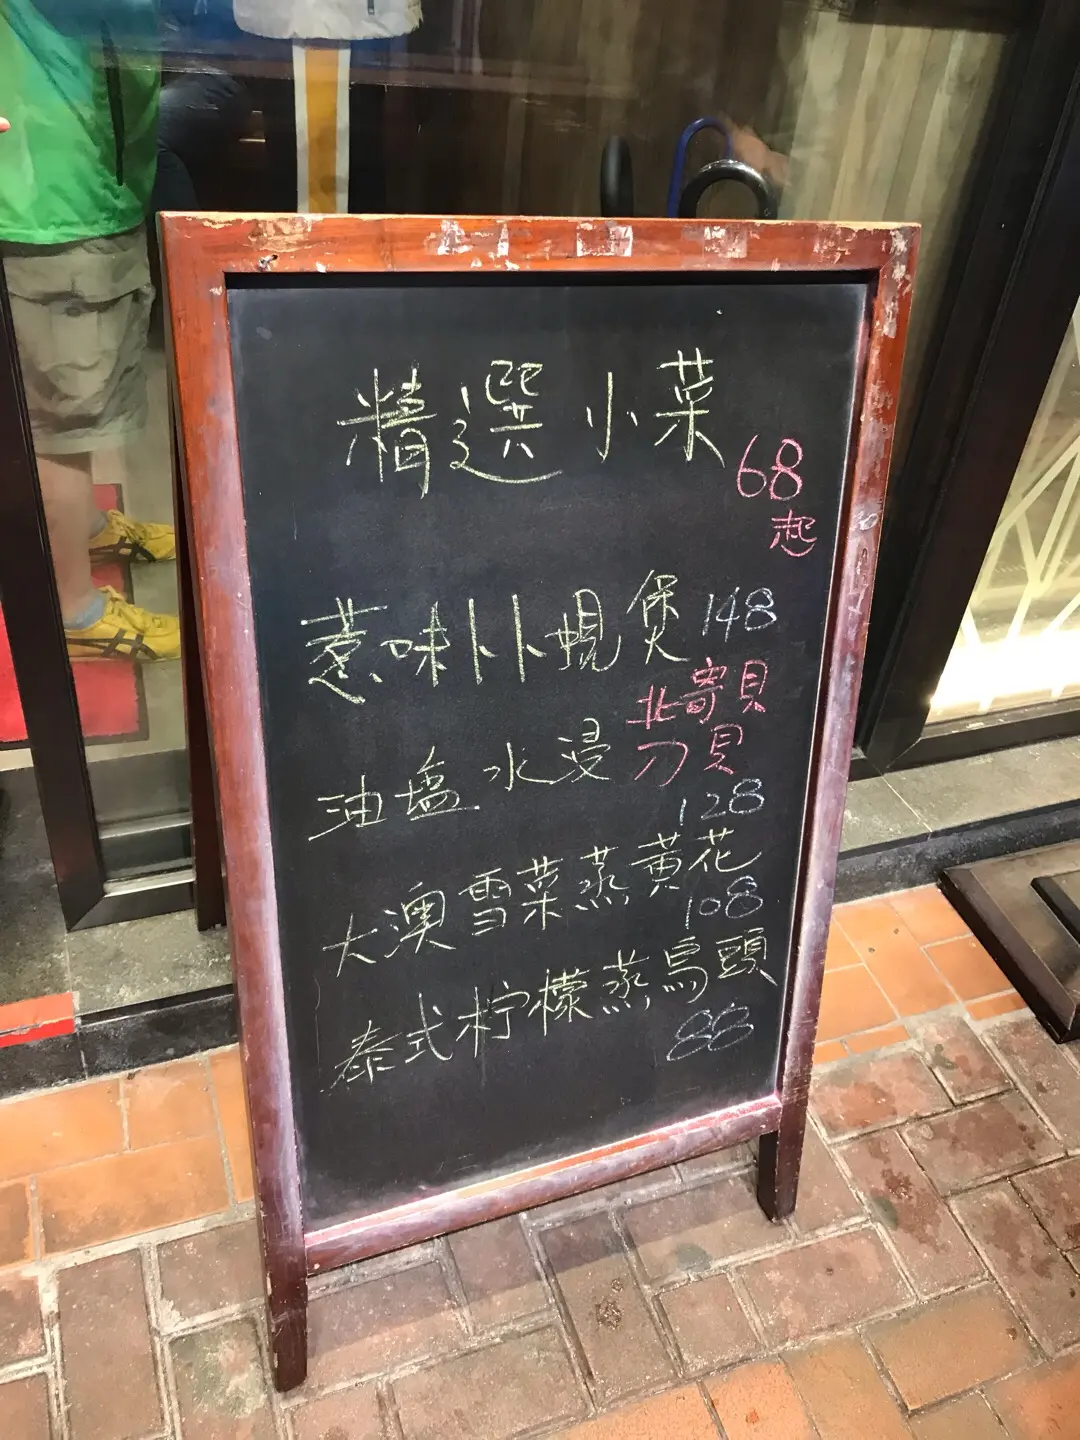 精選小菜
68
起
惹味卜卜蜆煲 148
油塩水浸 北寄貝
刀貝
128
大澳雪菜蒸黄花
108
泰式柠檬蒸烏頭
88